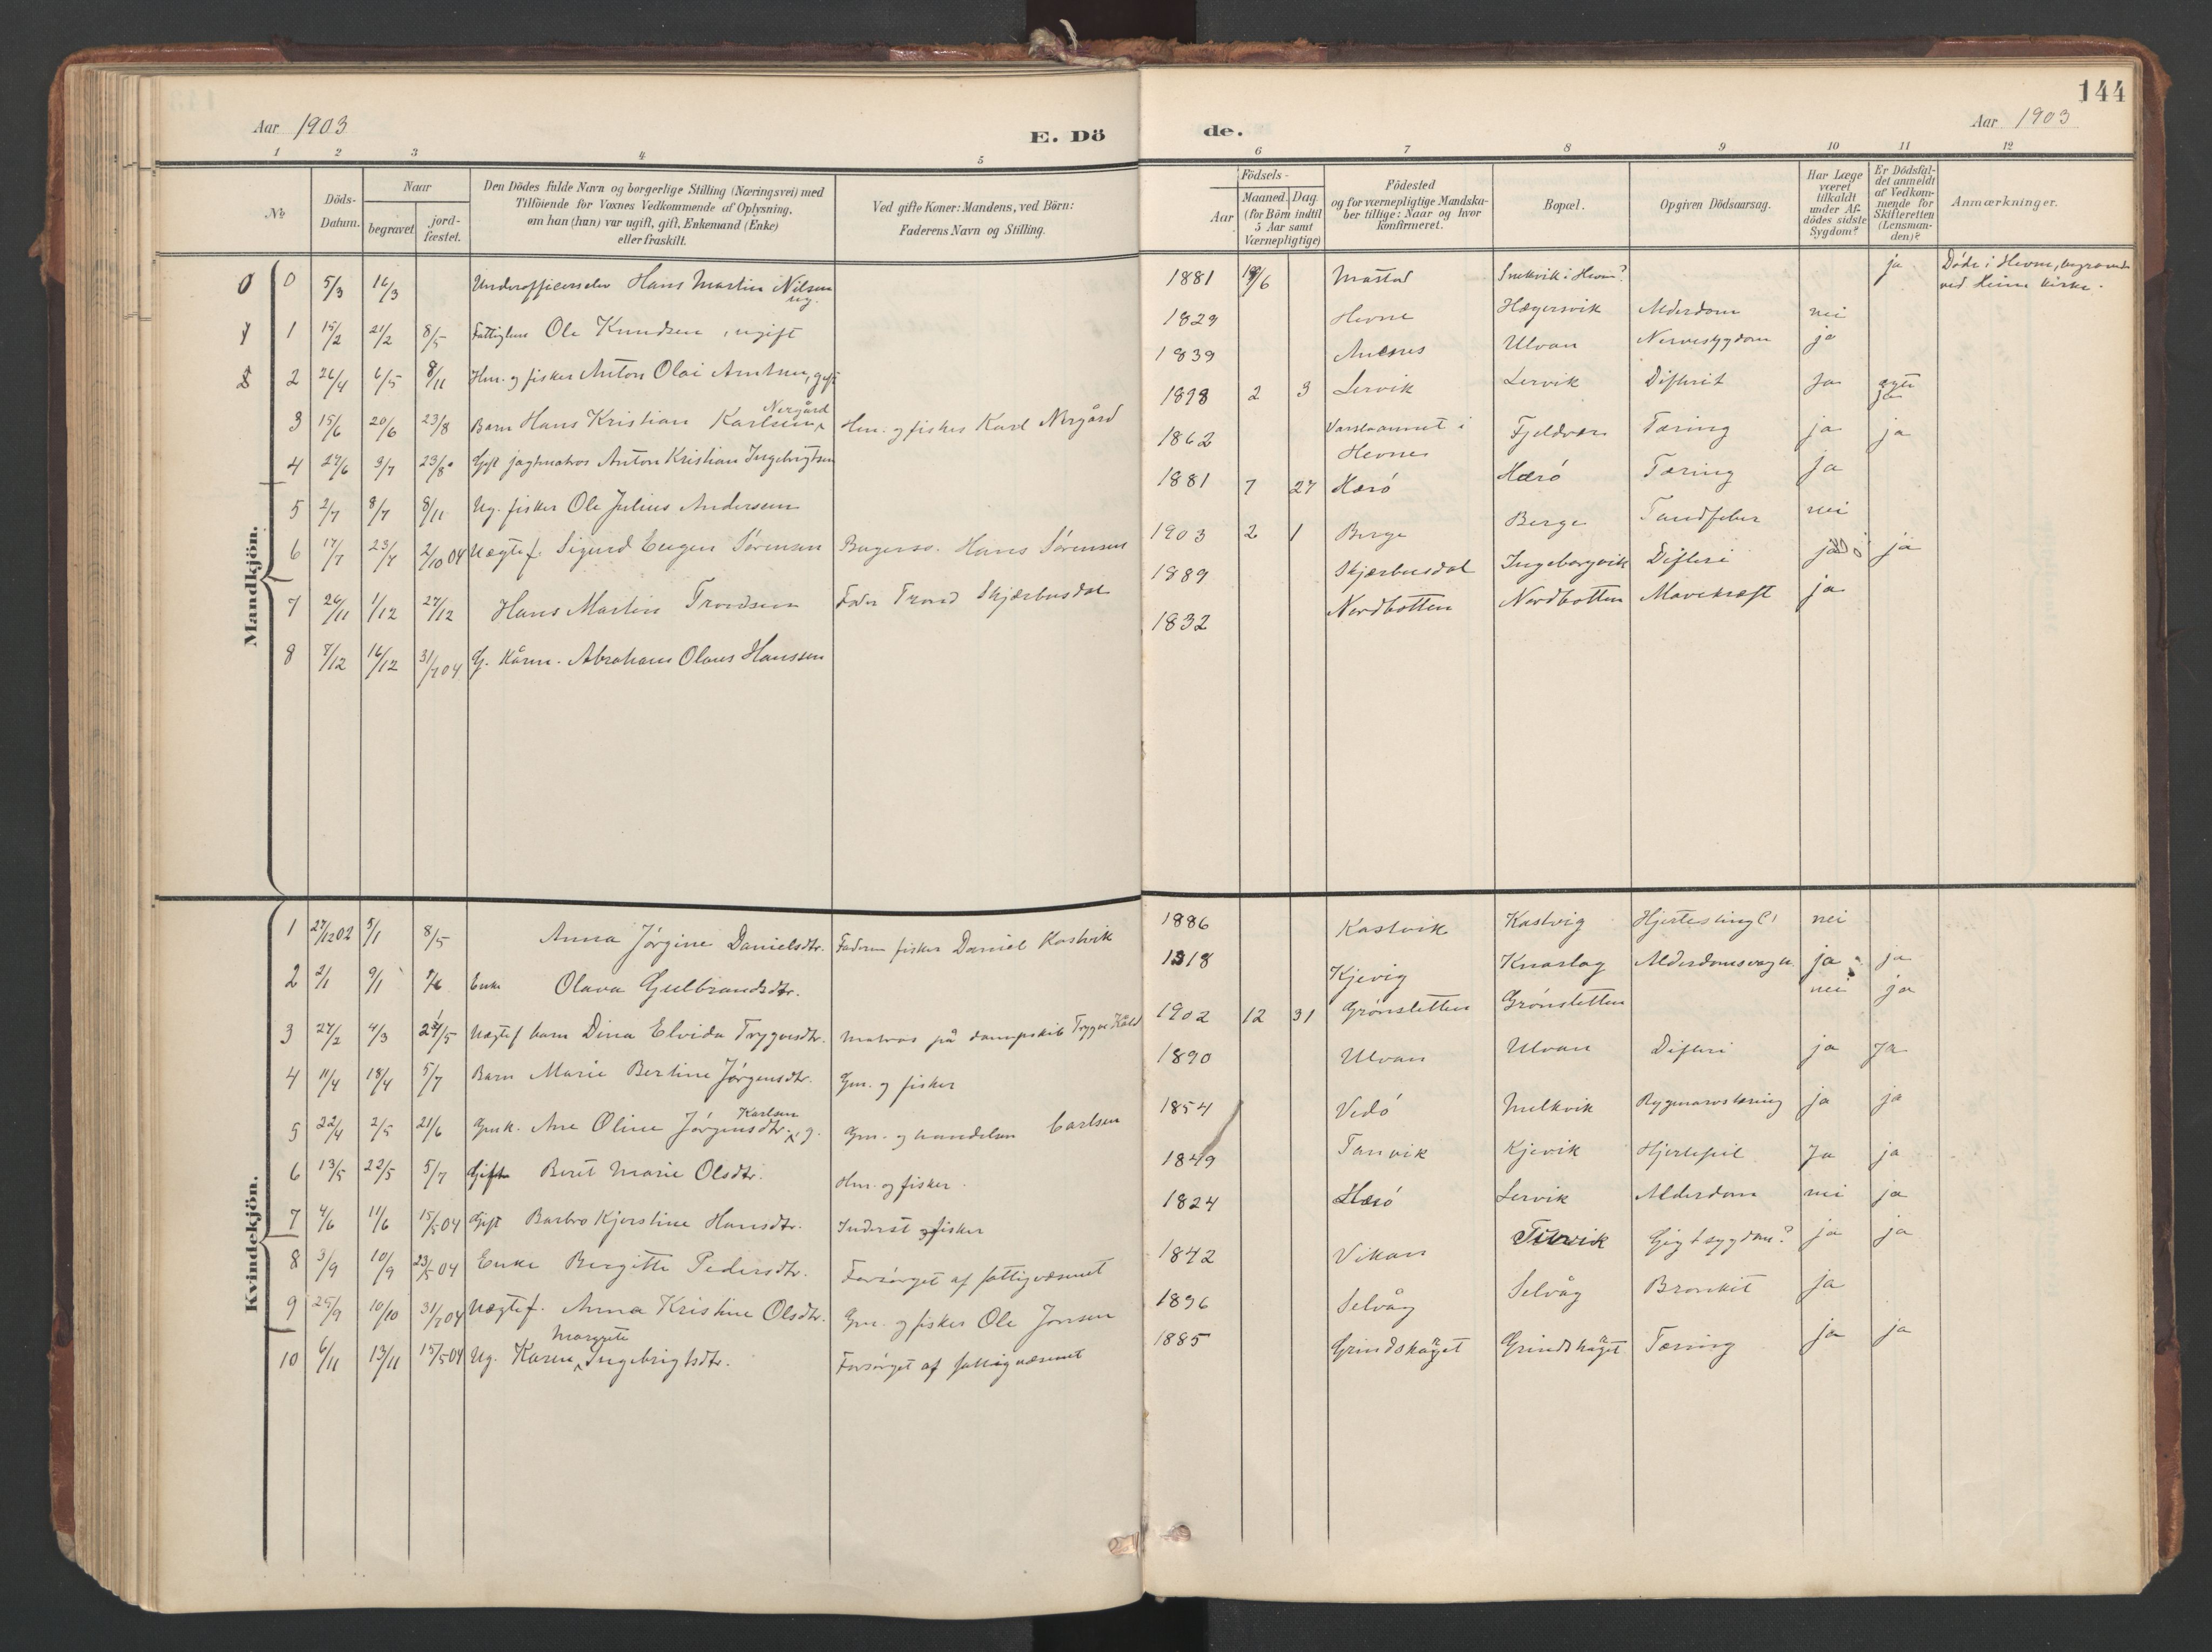 144
Aar 1903
E. Dö
de.
Aar 1903
1 2 3 4 5 6 7 8 9 10 11 12
№
Döds-
Datum.
Naar
begravet
jord-
fæstet.
Den Dödes fulde Navn og borgerlige Stilling (Næringsvei) med
Tilföiende for Voxnes Vedkommende af Oplysning,
om han (hun) var ugift, gift, Enkemand (Enke)
eller fraskilt.
Ved gifte Koner: Mandens, ved Börn:
Faderens Navn og Stilling.
Födsels-
Aar
Maaned. Dag.
(for Börn indtil
5 Aar samt
Værnepligtige)
Födested
og for værnepligtige Mandska-
ber tillige: Naar og hvor
konfirmeret.
Bopæl.
Opgiven Dödsaarsag.
Har Læge
været
tilkaldt
under Af-
dödes sidste
Sygdom?
Er Dödsfal-
det anmeldt
af Vedkom-
mende for
Skifteretten
(Lensman-
den)?
Anmærkninger.
Mandkjön.
0 5/3 16/3 Underofficerselev Hans Martin Nilsen ug. 1881 6 Mastad Snekvik i Hevn? ja Døde i Hevne, begravede
ved Heim kirke.
1 15/2 21/2 8/5 Fattiglem Ole Knudsen, ugift 1829 Hevne Hægersvik Alderdom nei
2 26/4 6/5 8/11 Hm. og fisker Anton Olai Arntsen, gift 1839 Ulvan Nervesygdom ja
3 15/6 20/6 23/8 Barn Hans Kristian Karlsen Nergård Hm. og fisker Karl Nergård 1898 2 3 Lervik Lervik Difterit Ja
4 27/6 3/7 23/8 Gift jagtmatros Anton Kristian Ingebrigtsen 1862 i Hevne Fjeldvær Tæring ja ja
5 2/7 8/7 8/11 Ug. fisker Ole Julius Andersen 1881 7 27 Hærö Hærö Tæring ja
6 17/7 23/7 2/10 04 Uægtef. Sigurd Eugen Sörensen Hans Sörensen 1903 2 1 Berge Berge Tandfeber nei
7 26/11 1/12 27/12 Hans Martin Trondsen Fader Trond Skjærbusdal 1889 Skjærbusdal Ingeborgvik Difteri ja ja
8 7/12 16/12 31/7 04 G. Kårm. Abraham Olaus Hanssen 1832 Nordbotten Nordbotten Mavekræft ja
Kvindekjön.
1 27/12 02 5/1 8/5 Anna Jörgine Danielsdtr. Faderen fisker Daniel Kastvik 1886 Kastvik Kastvig nei
2 2/1 9/1 7/6 Enke Olava Gulbrandsdtr. 1818 Kjevig Knarlag ja ja
3 27/2 4/3 5 Uægtef barn Dina Elvida Trygvesdtr. Matros på dampskib Trygve 1902 12 31 Grönsletten Grönsletten nei ja
4 11/4 18/4 5/7 Barn Marie Bertine Jörgensdtr. Gm. og fisker 1890 Ulvan Ulvan Difteri ja Ja
5 22/4 2/5 21/6 Gmk. Ane Oline Jörgensdtr. Karlsen g. Gm. og handelsm Carlsen 1854 Vedö Melkvik Rygmarvstæring ja ja
6 13/5 22/5 5/7 Gift Beret Marie Olsdtr. Hm. og fisker. 1849 Tanvik Kjevik Hjertefeil Ja ja
7 4/6 11/6 15/5 04 Gift Barbro Kjerstine Hansdtr. Inderst og fisker 1824 Hærö Lervik Alderdom nei ja
8 3/9 10/9 23/5 04 Enke Bergitte Pedersdtr. Forsörget af fattigvæsenet 1842 Vikan Gigtsygdom? ja ja
9 25/9 10/10 31/7 04 Uægtef. Anna Kristine Olsdtr. Gm. og fisker Ole Jonsen 1896 Selvåg Selvåg Bronkit ja
10 6/11 13/11 15/5 04 Ug. Karen Margrete Ingebrigtsdtr. Forsörget af fattigvæsenet 1885 Grindskaget Grindskaget Tæring ja ja